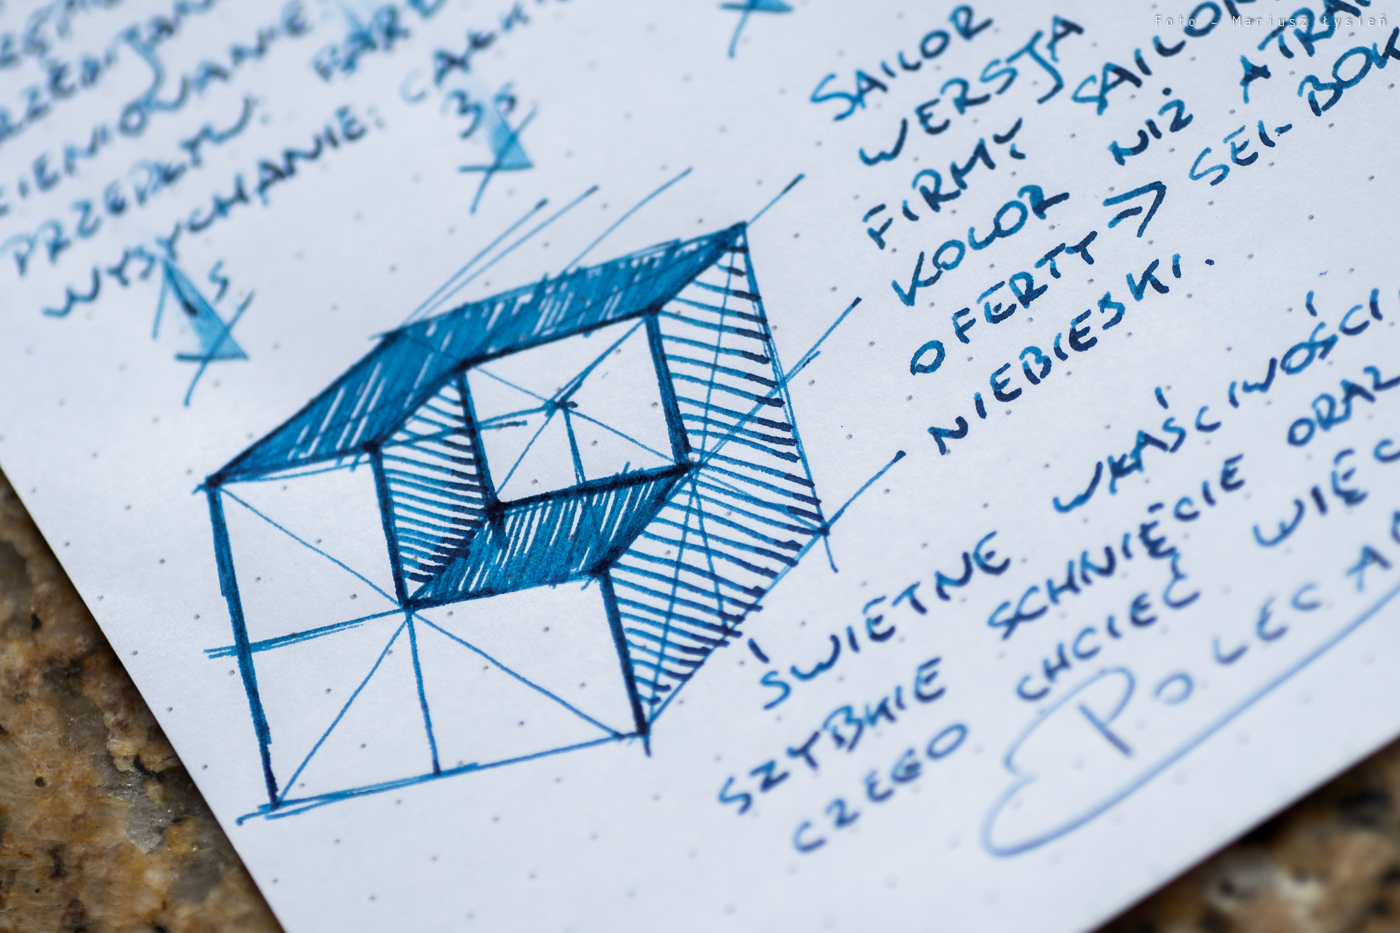 Foto - Mariusz Łysień
CIENIOWANIE
PRZEPŁYW:
WYSYCHANIE: CAŁK
3s
s
SAILOR
WERSJA
FIRMY SAILOR
KOLOR NIŻ ATRA
OFERTY => SEI-BOK
NIEBIESKI.
ŚWIETNE WŁAŚCIWOŚCI
SZYBKIE SCHNIĘCIE ORAZ
CZEGO CHCIEĆ WIĘC
POLECA